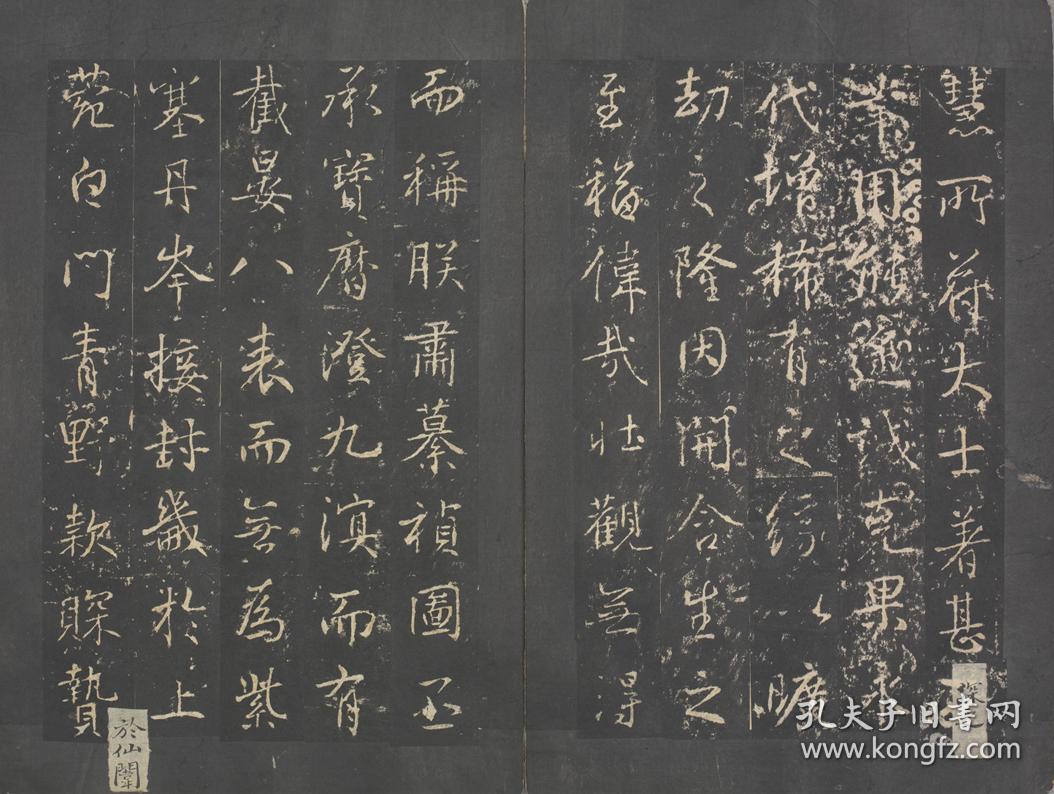 慧所荷大士著甚深
業用能誠克果永
代增稀有之緣以曠
劫之隆因開含生之
至福偉哉壯觀無得
而稱朕肅纂禎圖丕
承寶曆澄九溟而有
截晏八表而無為紫
塞丹岑接封畿於上
菀白門青野款賝贄
於仙闈
孔夫子旧书网
www.kongfz.com